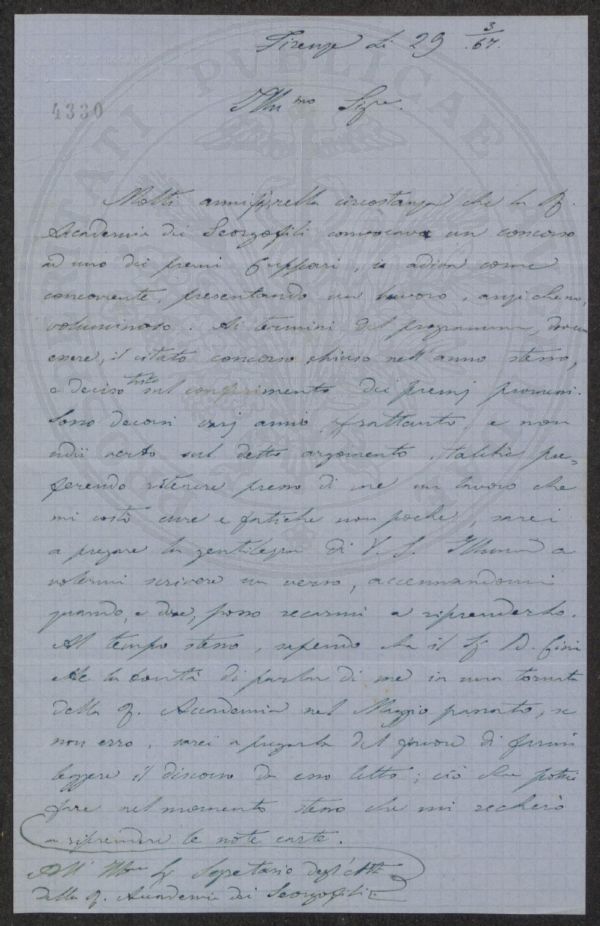 Firenze li 29 3/67.
4330
Illmo Sigre.
Molti anni per la circostanza che la R.
Accademia dei Georgofili convocava un concorso
ad uno dei premi Cuppari, io adiva come
concorrente, presentando un lavoro, anzichenò,
voluminoso. Ai termini del programma,
essere, il citato concorso chiuso nell'anno stesso,
e deciso tosto sul conferimento dei premj promessi.
Sono decorsi varj anni, frattanto, e non
udii verbo sul detto argomento, talchè pre-
ferendo ritenere presso di me un lavoro che
mi costò cure e fatiche non poche, sarei
a pregare la gentilezza di V. S. Illma a
volermi scrivere un verso, accennandomi
quando, e dove, posso recarmi a riprenderlo.
Al tempo stesso, sapendo che il Sr D.
la bontà di parlar di me in una tornata
della R. Accademia nel Maggio passato, se
non erro, sarei a pregarla del favore di farmi
leggere il discorso da esso letto; ciò che potrà
fare nel momento stesso che mi recherò
a riprendere le note carte.
All' Illmo Sr Segretario degli Atti
della R. Accademia dei Georgofili